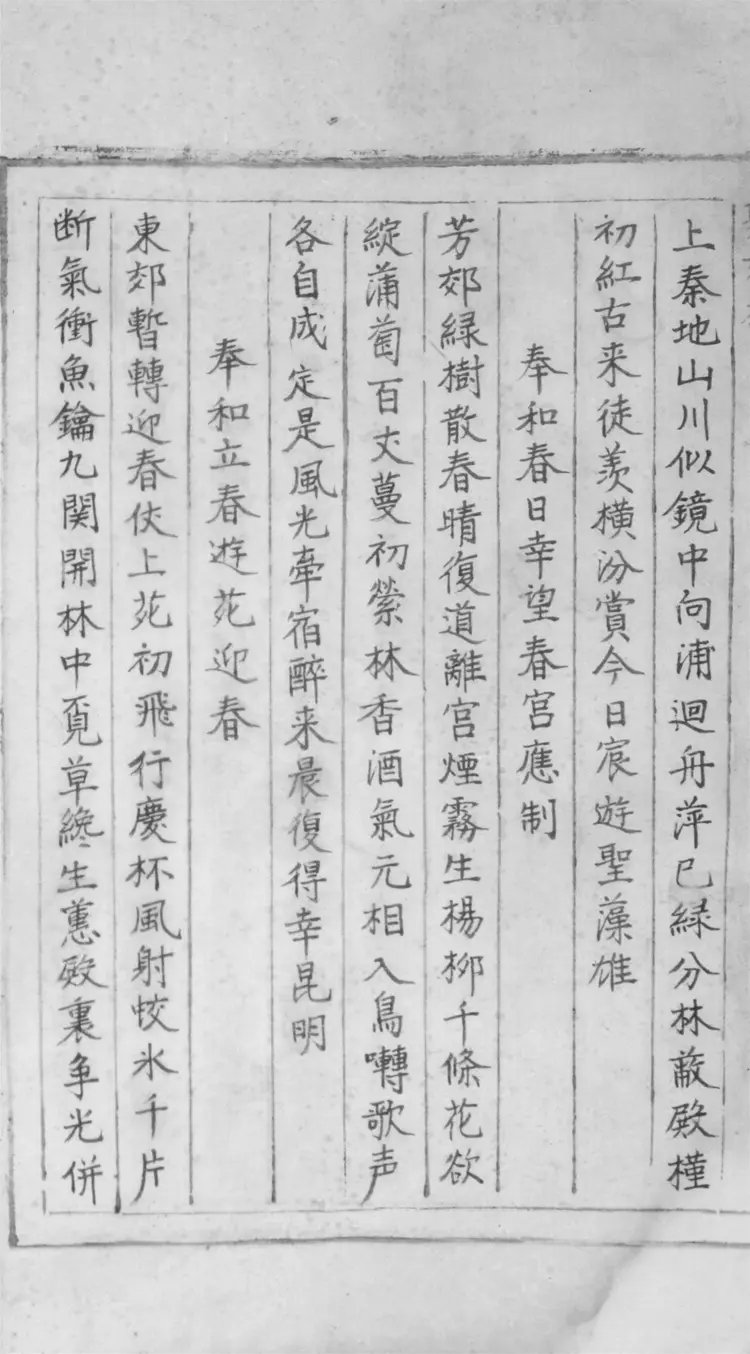 上秦地山川似鏡中向浦迴舟萍已緑分林蔽殿槿
初紅古来徒羨横汾賞今日宸遊聖藻雄
奉和春日幸望春宮應制
芳郊緑樹散春晴復道離宮煙霧生楊栁千條花欲
綻蒲萄百丈蔓初縈林香酒氣元相入鳥囀歌声
各自成定是風光牽宿醉来晨復得幸昆明
奉和立春遊苑迎春
東郊暫轉迎春仗上苑初飛行慶杯風射蛟氷千片
断氣衝魚鑰九関開林中覓草纔生蕙殿裏争光併